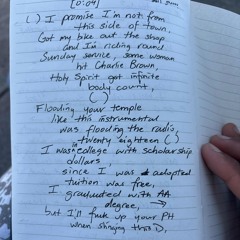 [0:04]
L) I promise I'm not from
this side of town
Got my bike out the shop
and I'm riding round
Sunday service, some woman
hit Charlie Brown
Holy Spirit got infinite
body count,
( )
Flooding your temple
like this instrumental
was flooding the radio,
twenty eighteen ( )
I was in college with scholarship
dollars
since I was adopted
tuition was free,
I graduated with AA
degree, →
but I'll fuck up your PH
when slinging this D,